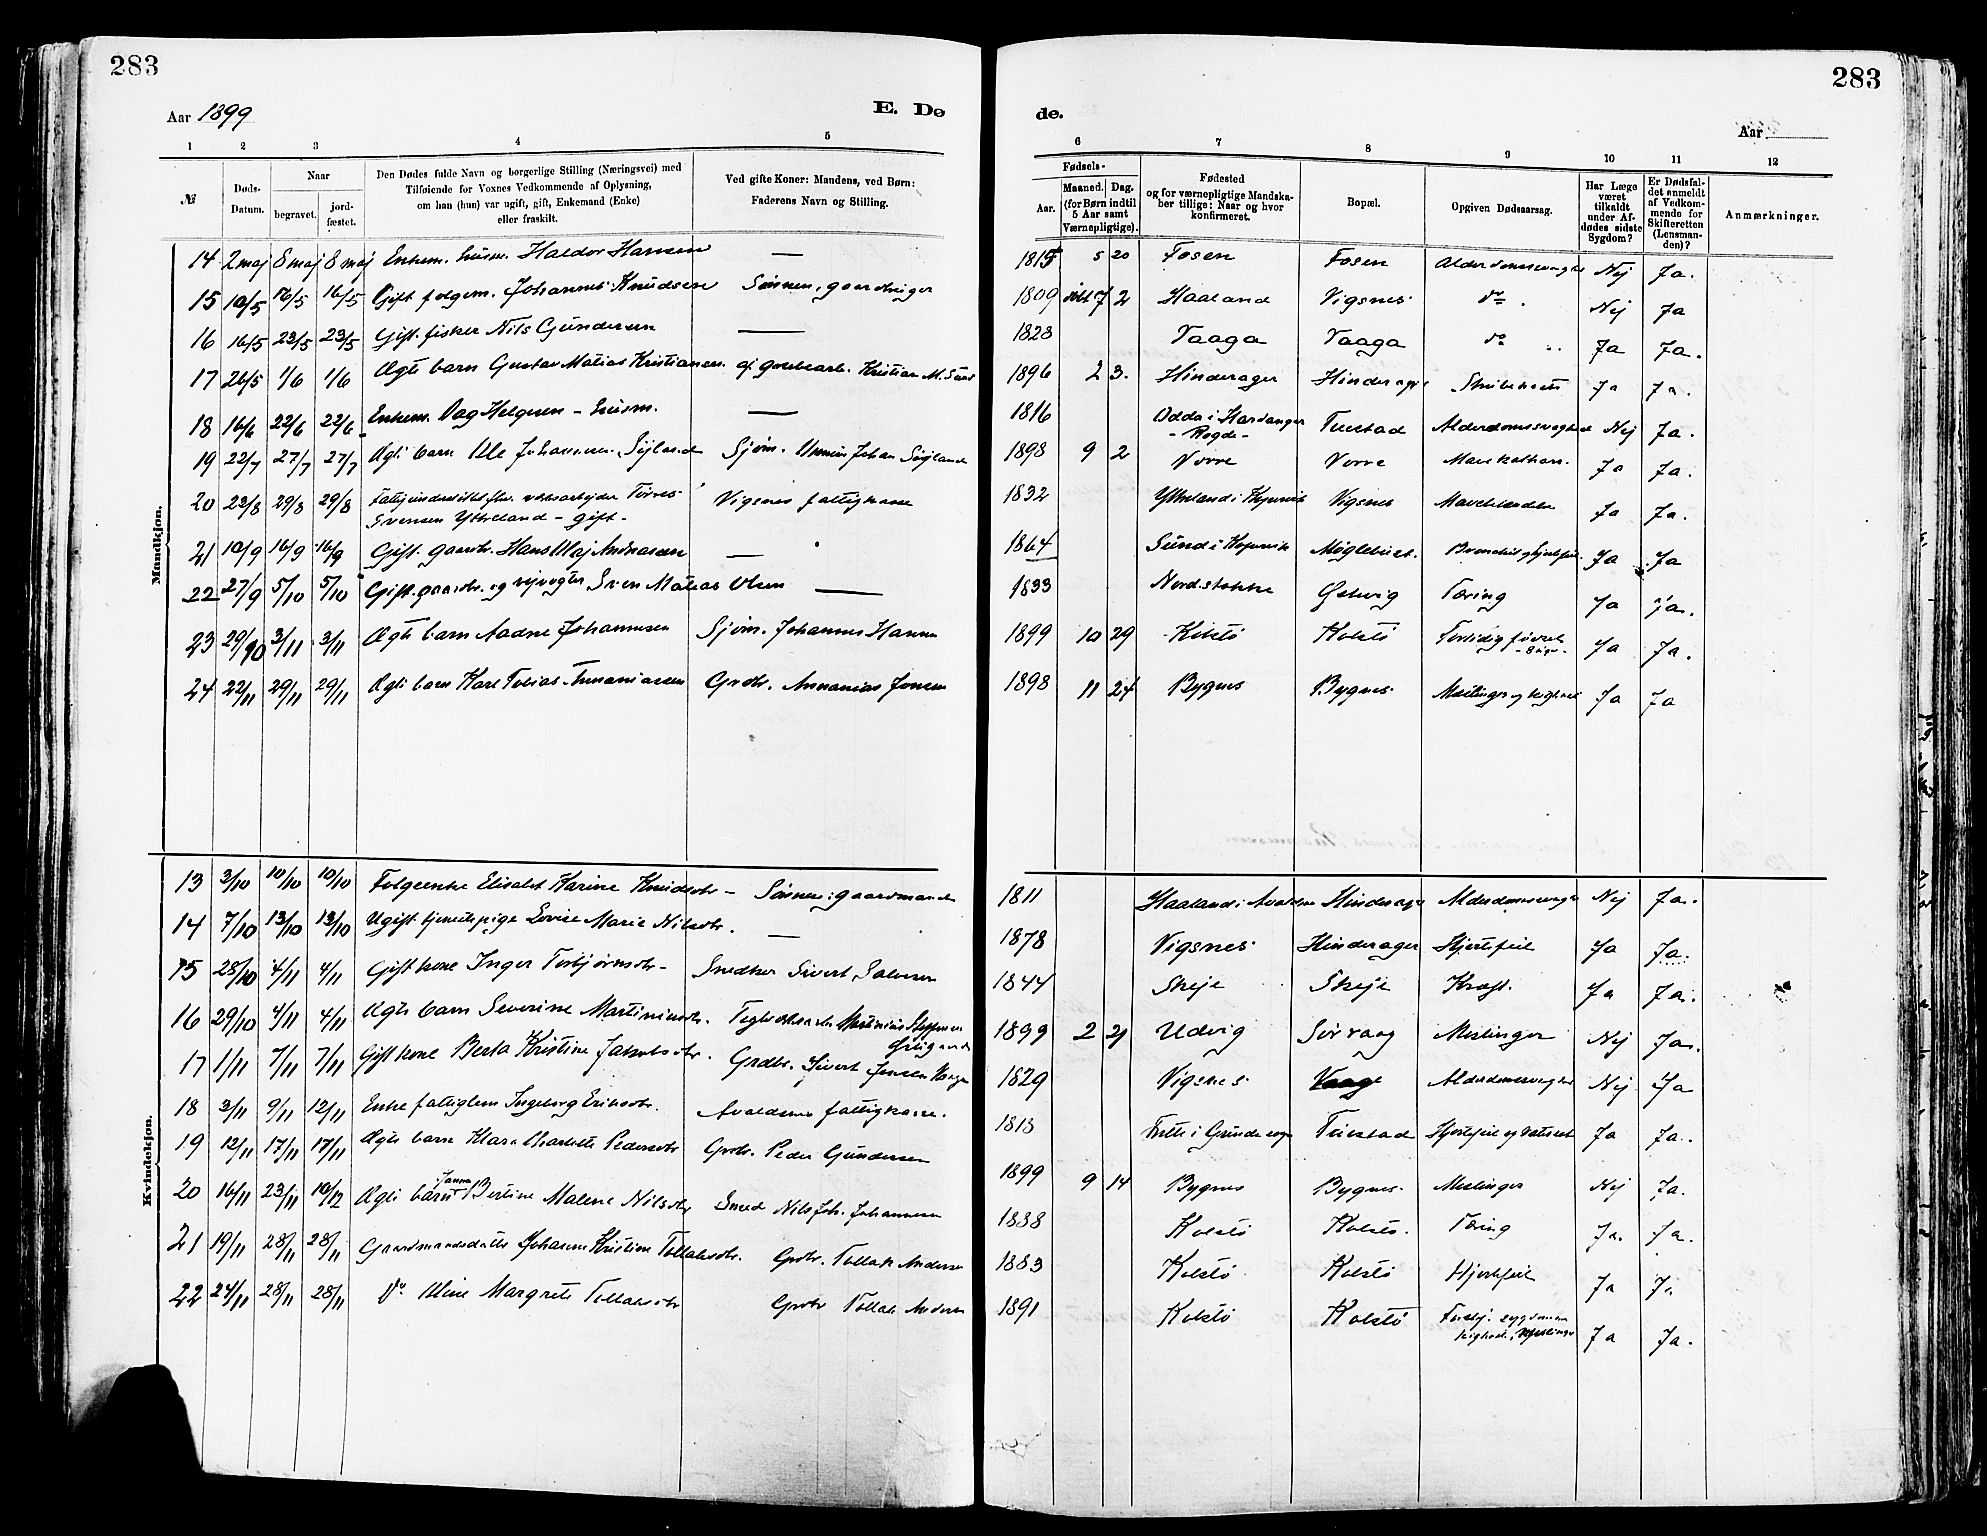 283
Aar 1899
E. Dø
1 2 3 4 5
№
Døds-Datum.
Naar
begravet.
jord-fæstet.
Den Dødes fulde Navn og borgerlige Stilling (Næringsvei) med
Tilføiende for Voxnes Vedkommende af Oplysning,
om han (hun) var ugift, gift, Enkemand (Enke)
eller fraskilt.
Ved gifte Koner: Mandens, ved Børn:
Faderens Navn og Stilling.
Mandkjøn.
14 2 maj 8 maj 8 maj Enkem. husm. Haldor Hansen —
15 10/5 16/5 16/5 Gift folgem. Johannes Knudsen Sønnen, gaardbruger
16 16/5 23/5 23/5 Gift fisker Nils Gundersen —
17 26/5 1/6 1/6 Ægte barn Gustav Matias Kristiansen. af grubearb. Kristian M.
18 16/6 22/6 22/6 Enkem. Dag Helgesen – husm. —
19 22/7 27/7 27/7 Ægte barn Ole Johannesen Søjland Sjøm. Johan Søjland
20 23/8 29/8 29/8
Svensen Ytreland – gift. Vigsnes fattigkasse
21 10/9 16/9 16/9 Gift gaardbr. Hans Olaj Andreasen —
22 27/9 5/10 5/10 Gift gaardbr. og vejvogter Sven Matias Olsen —
23 29/10 3/11 3/11 Ægte barn Aadne Johannesen Sjøm. Johannes Hansen
24 22/11 29/11 29/11 Ægte barn Karl Tobias Annaniassen Grdbr. Annanias Jonsen
Kvindekjøn.
13 3/10 10/10 10/10 Folgeenke Elisabet Karine Knudsdtr – Sønnen: gaardmand
14 7/10 13/10 13/10 Ugift tjenestpige Lovise Marie Nilsdtr. —
15 28/10 4/11 4/11 Gift kone Inger Torbjørnsdtr – Snedker Sivert Salvesen
16 29/10 4/11 4/11 Ægte barn Severine Martinusdtr. Martinius Steffensen
17 1/11 7/11 7/11 Gift kone Berta Kristine Jakobsdtr. Grdbr. Sivert Jensen
18 3/11 9/11 12/11 Enke fattiglem Ingeborg Eriksdtr. Avaldsnes fattigkasse.
19 12/11 17/11 17/11 Ægte barn Klara Charlotte Pedersdtr Grdbr. Peder Gundersen
20 16/11 23/11 10/12 Ægte barn Janna Bertine Malene Nilsdtr Smed Nils Joh. Johannesen
21 19/11 28/11 28/11 Gaardmandsdatter Johanne Kristine Tollaksdtr. Grdbr. Tollak Andersen
22 24/11 28/11 28/11 Do Oline Margrete Tollaksdtr Grdbr Tollak Andersen
283
de.
Aar
6 7 8 9 10 11 12
Fødsels-
Aar. Maaned. Dag.
(for Børn indtil
5 Aar samt
Værnepligtige).
Fødested
og for værnepligtige Mandska-
ber tillige: Naar og hvor
konfirmeret.
Bopæl.
Opgiven Dødsaarsag.
Har Læge
været
tilkaldt
under Af-
dødes sidste
Sygdom?
Er Dødsfal-
det anmeldt
af Vedkom-
mende for
Skifteretten
(Lensman-
den)?
Anmærkninger.
1815 5 20 Fosen Fosen Alderdomssvaghed Nej Ja.
1809 7 2 Haaland Vigsnes do. Nej Ja
1823 Vaaga Vaaga do Ja Ja.
1896 2 3. Hinderager Hinderager Strubehoste Ja Ja.
1816 Odda i Hardanger Tuestad Alderdomssvaghed Nej Ja.
1898 9 2 Vorre Vorre Ja Ja.
1832 Ytreland i Kopervik Vigsnes Ja Ja.
1864 Sund i Kopervik Ja Ja
1833 Nordstokke Tæring Ja Ja.
1899 10 29 Kolstø Kolstø Fortidig fødsel Ja Ja.
1898 11 24 Bygnes Bygnes Meslinger og kighoste Ja Ja
1811 Haaland i Avaldsnes Hinderager Alderdomssvaghed Nej Ja.
1878 Vigsnes Hinderager Hjertefeil Ja Ja.
1844 Skeje Skeje Kræft. Ja Ja.
1899 2 21 Udvig Sørvaag Meslinger Nej Ja.
1829 Vigsnes Vaage Alderdomssvaghed Nej Ja
1813 Tuestad Hjertefeil og Ja Ja.
1899 9 14 Bygnes Bygnes. Meslinger Nej Ja.
1838 Kolstø Kolstø. Tæring Ja. Ja.
1883 Kolstø Kolstø Hjertefeil Ja Ja
1891 Kolstø Kolstø
kighoste, Meslinger Ja Ja.